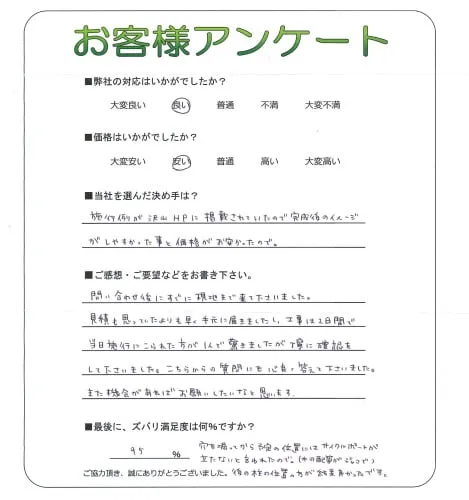 お客様アンケート
■弊社の対応はいかがでしたか？
大変良い　良い　普通　不満　大変不満
■価格はいかがでしたか？
大変安い　安い　普通　高い　大変高い
■当社を選んだ決め手は？
施行例が沢山HPに掲載されていたので完成後のイメージ
がしやすかった事と価格がお安かったので。
■ご感想・ご要望などをお書き下さい。
問い合わせ後にすぐに現地まで来て下さいました。
見積も思っていたよりも早く手元に届きましたし、工事は2日間で
当日施行にこられた方が1人で驚きましたが丁寧に確認を
して下さいました。こちらからの質問にも心良く答えて下さいました。
また機会があればお願いしたいなと思います。
■最後に、ズバリ満足度は何%ですか？
95　%
穴を掘ってから予定の位置にはサイクルポートが
立たないと言われたので。(水の配管が
ご協力頂き、誠にありがとうございました。
後の柱の位置の方が結果良かったです。